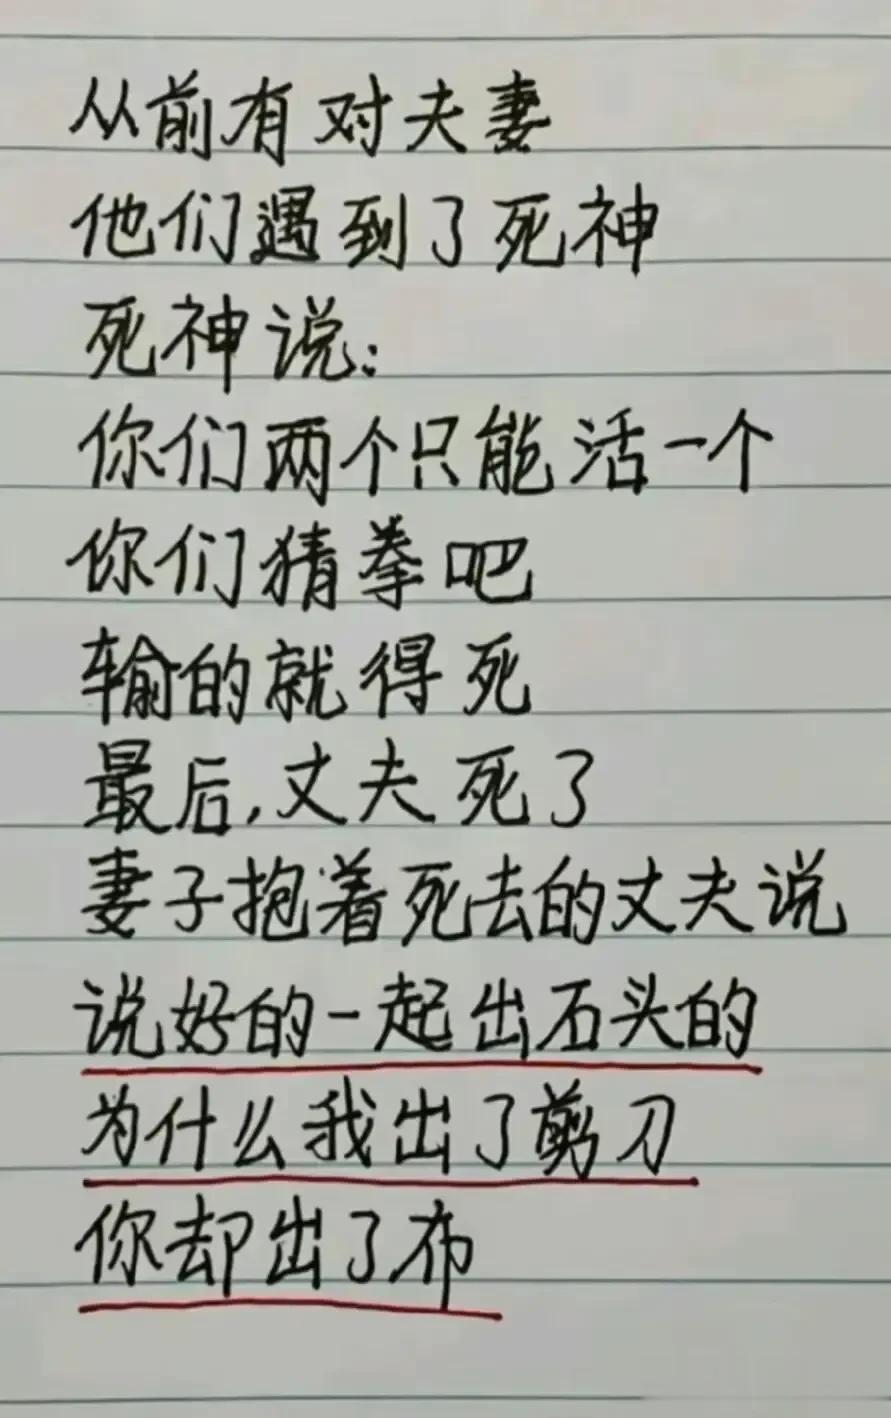 从前有对夫妻
他们遇到了死神
死神说:
你们两个只能活一个
你们猜拳吧
输的就得死
最后,丈夫死了
妻子抱着死去的丈夫说
说好的一起出石头的
为什么我出了剪刀
你却出了布